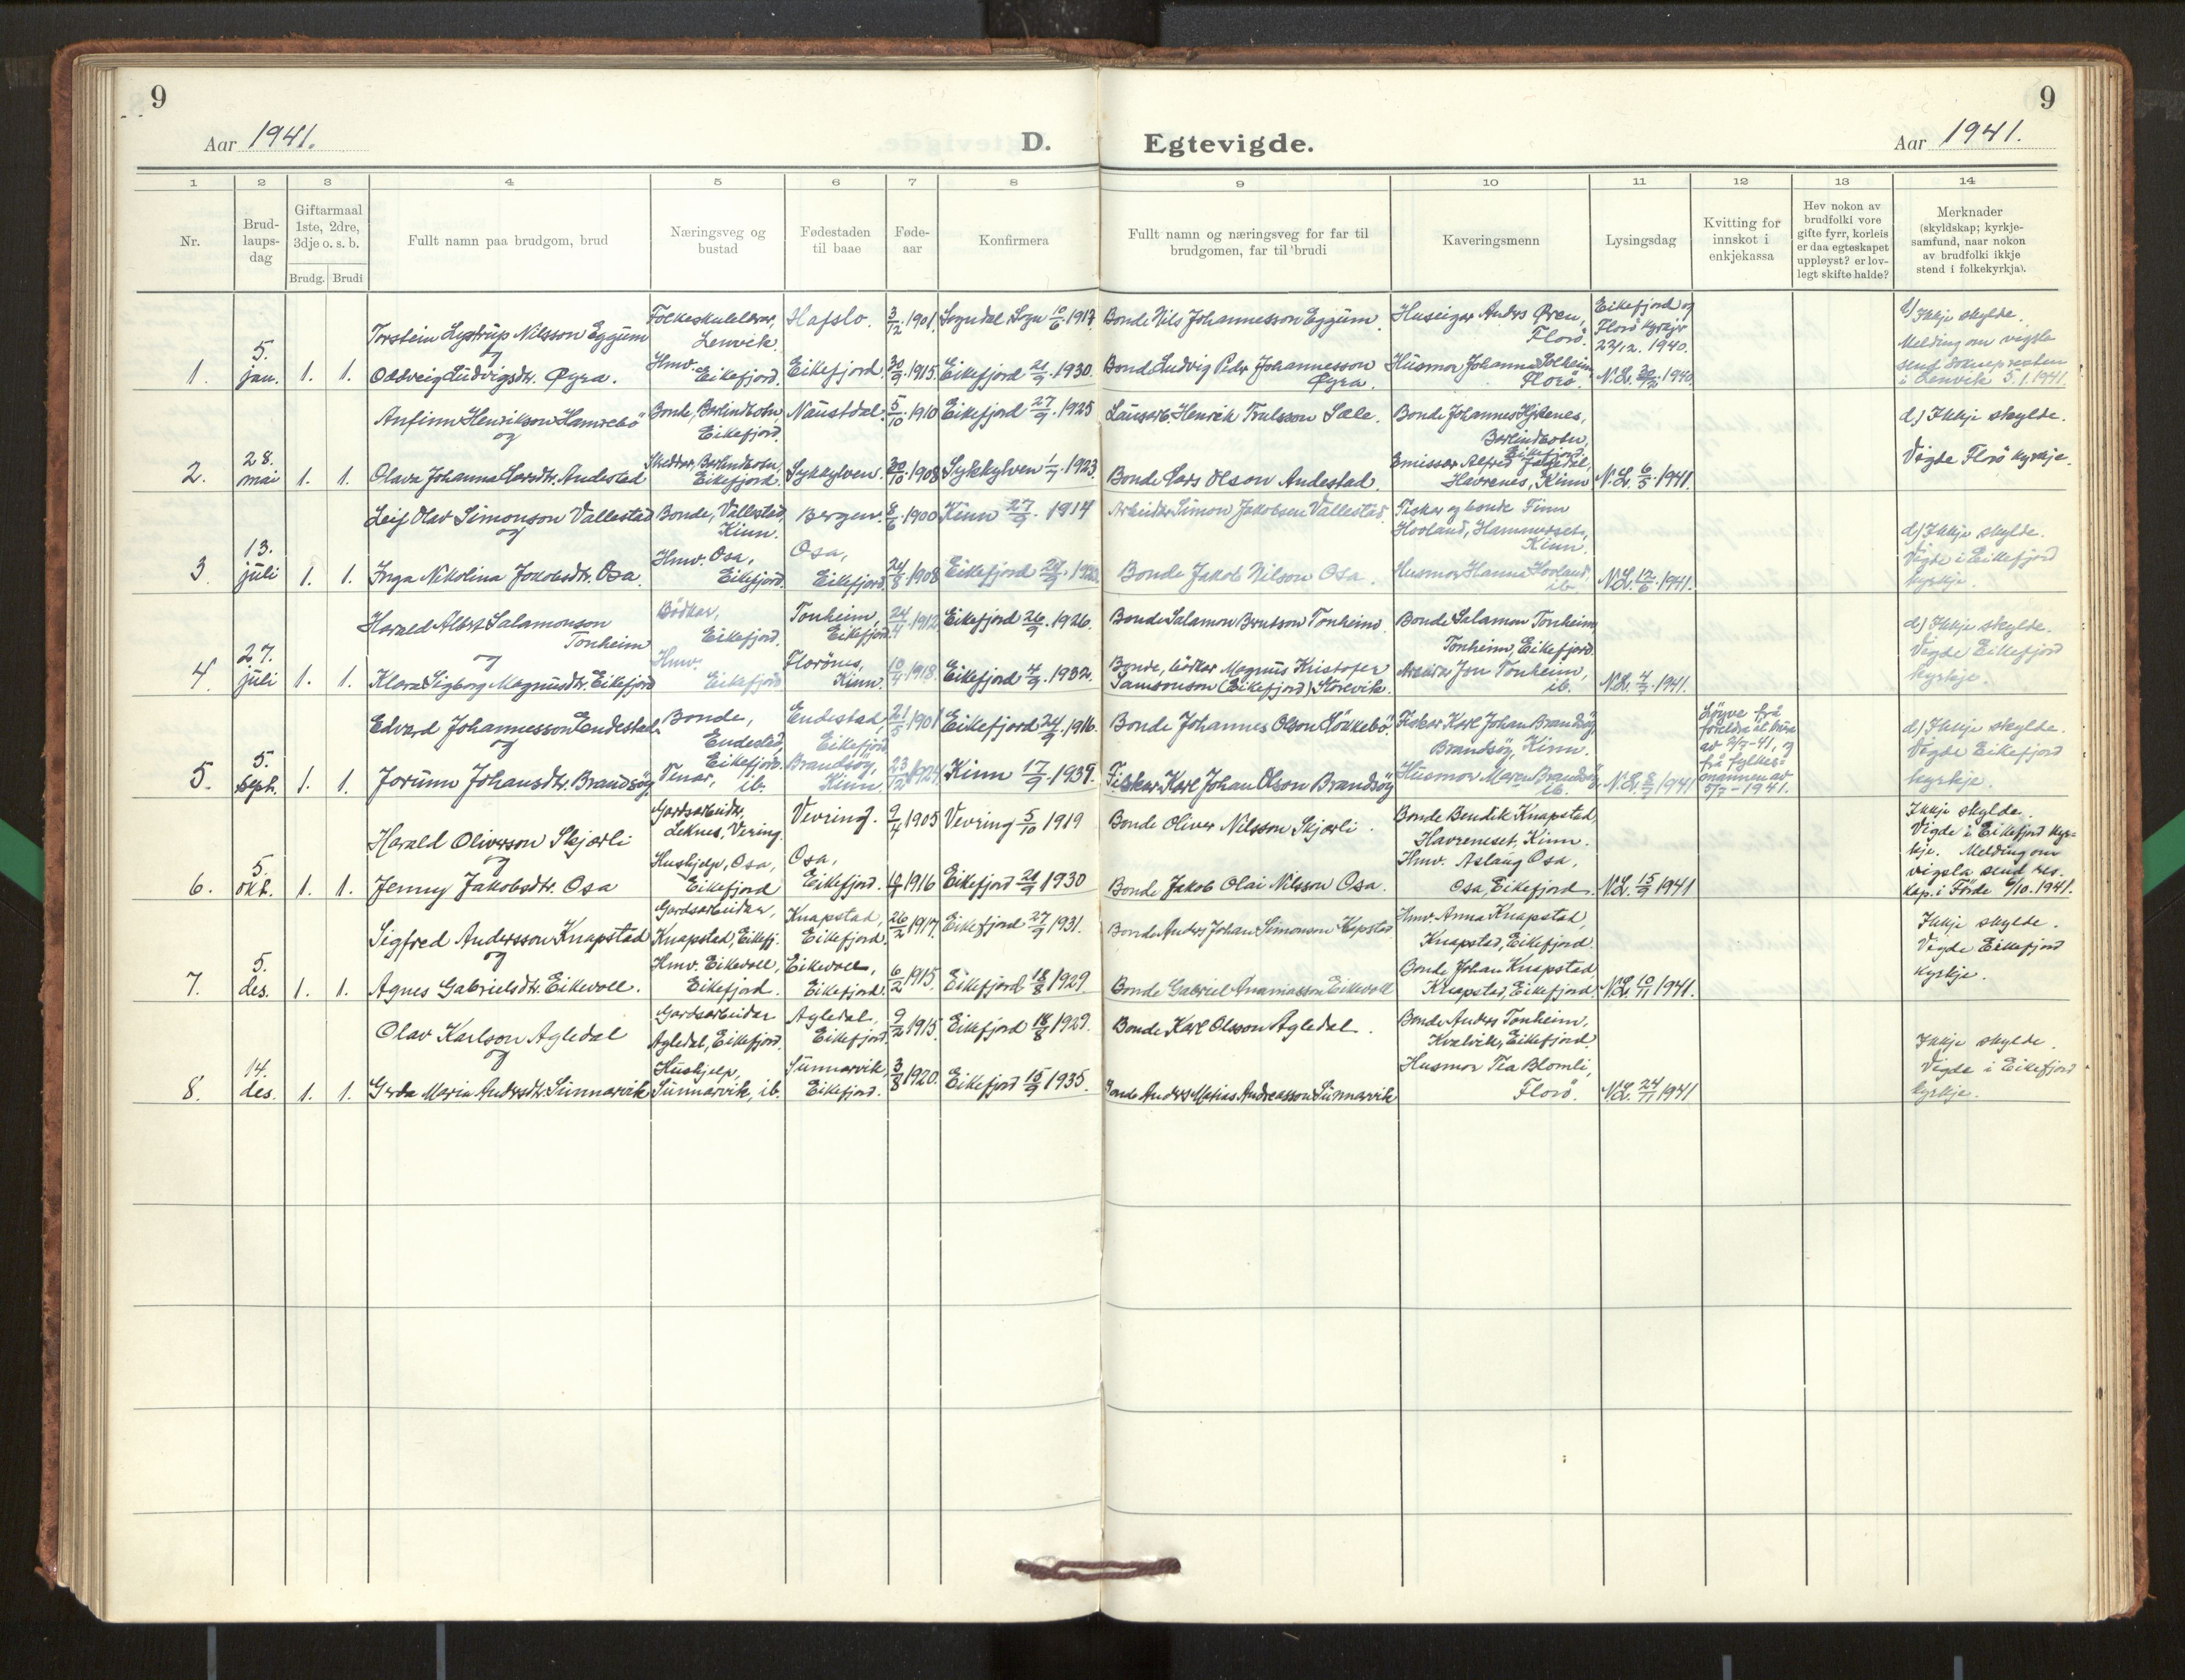 9
9
Aar 1941.
D.
Egtevigde.
Aar 1941.
1
2
3
4
5
6
7
8
9
10
11
12
13
14
Nr.
Brud-
laups-
dag
Giftarmaal
1ste, 2dre,
3dje o. s. b.
Brudg.
Brudi
Fullt namn paa brudgom, brud
Næringsveg og
bustad
Fødestaden
til baae
Føde-
aar
Konfirmera
Fullt namn og næringsveg for far til
brudgomen, far til brudi
Kaveringsmenn
Lysingsdag
Kvitting for
innskot i
enkjekassa
Hev nokon av
brudfolki vore
gifte fyrr, korleis
er daa egteskapet
uppløyst? er lov-
legt skifte halde?
Merknader
(skyldskap; kyrkje-
samfund, naar nokon
av brudfolki ikkje
stend i folkekyrkja).
1.
5.
jan.
1.
1.
Torstein Lystrup Nilsson Eggum
og
Oddveig Ludvigsdtr. Øyra.
Folkeskulelærar,
Lenvik.
Hmv.
Eikefjord.
Hafslo.
Eikefjord.
3/12. 1901.
30/9. 1915.
Sogndal, Sogn 10/6 1917
Eikefjord 21/9. 1930.
Bonde Nils Johannesson Eggum.
Bonde Ludvig Peder Johannesson
Øyra.
Huseigar Anders Øren,
Florø.
Husmor Johanna Solheim
Florø.
Eikefjord og
Florø kyrkjer
22/12. 1940.
N.L. 30/12. 1940.
Ikkje skylde.
Melding om vigsla
send soknepresten
i Lenvik 5.1.1941.
2.
28.
mai
1.
1.
Anfinn Henrikson Hamrebø
og
Olava Johanna Larsdtr. Andestad
Bonde, Barlindbotn,
Eikefjord.
Barlindbotn,
Eikefjord.
Naustdal.
Sykkylven.
5/10 1910
30/10. 1908
Eikefjord 27/9. 1925
Sykkylven 1/7. 1923.
Lausarb. Henrik Trulsson Sæle.
Bonde Lars Olson Andestad.
Bonde Johannes
Barlindbotn,
Eikefjord.
Emissær Alfred
Havrenes, Kinn
N.L. 6/5. 1941.
d.) Ikkje skylde.
Vigde Florø kyrkje.
3.
13.
juli
1.
1.
Leif Olav Simonson Vallestad
og
Inga Nikolina Jakobsdtr. Osa.
Bonde, Vallestad,
Kinn.
Hmv. Osa,
Eikefjord.
Bergen.
Osa,
Eikefjord.
8/6. 1900
24/8. 1908
Kinn 27/9. 1914
Eikefjord
Arbeidar Simon Jakobsen Vallestad.
Bonde Jakob Nilson Osa.
Fiskar og bonde Finn
Hovland, Hammerset,
Kinn.
Husmor Hanna Hovland,
ib.
N.L. 12/6. 1941.
d) Ikkje skylde.
Vigde i Eikefjord
kyrkje.
4.
27.
juli
1.
1.
Harald Albert Salamonson
Tonheim
og
Klara Sigborg Magnusdtr. Eikefjord
Bødkar,
Eikefjord.
Hmv.
Eikefjord
Tonheim,
Eikefjord.
Florønes,
Kinn.
24/4. 1912.
1918.
Eikefjord 26/9. 1926.
Eikefjord 4/9. 1932.
Bonde Salamon Berntson Tonheim.
Bonde, bødkar Magnus Kristofer
Samsonson (Eikefjord) Storevik.
Bonde Salamon Tonheim
Tonheim, Eikefjord.
Jon Tonheim,
ib.
N.L. 4/7. 1941.
d) Ikkje skylde.
Vigde Eikefjord
kyrkje.
5.
5.
sept.
1.
1.
Edvard Johannesson Endestad
og
Jorunn Johansdtr. Brandsøy
Bonde,
Endestad,
Eikefjord.
Tenar,
ib.
Endestad,
Eikefjord.
Brandsøy,
Kinn.
21/5. 1901
23/12. 1924.
Eikefjord 24/9. 1916.
Kinn 17/9. 1939.
Bonde Johannes Olson Løkkebø.
Fiskar Karl Johan Olson Brandsøy
Fiskar Karl Johan Brandsøy,
Brandsøy, Kinn.
Husmor Maren Brandsøy,
ib.
N.L. 8/7 1941
Løyve frå
foreldre
av 2/7-41, og
frå fylkes-
mannen av
5/7-1941.
d) Ikkje skylde.
Vigde Eikefjord
kyrkje.
6.
5.
okt.
1.
1.
Harald Oliverson Skjærli
og
Jenny Jakobsdtr. Osa
Gardsarbeidar,
Leknes, Vevring.
Hushjelp, Osa,
Eikefjord
Vevring.
Osa,
Eikefjord.
9/4 1905
1916
Vevring 5/10 1919
Eikefjord 21/9 1930
Bonde Oliver Nilsson Skjærli.
Bonde Jakob Olai Nilsson Osa.
Bonde Bendik Knapstad,
Havreneset, Kinn.
Hmv. Aslaug Osa,
Osa, Eikefjord.
N.L. 15/9 1941
Ikkje skylde.
Vigde i Eikefjord kyr-
kje. Melding om
vigsla send res.
kap. i Førde 6/10. 1941.
7.
5.
des.
1.
1.
Sigfred Andersson Knapstad
og
Agnes Gabrielsdtr. Eikevoll.
Gardsarbeidar,
Knapstad, Eikefj.
Hmv. Eikevoll,
Eikefjord.
Knapstad,
Eikefjord.
Eikevoll,
Eikefjord.
26/2 1917.
6/2 1915.
Eikefjord 27/9 1931.
Eikefjord 18/8 1929.
Bonde Anders Johan Simonson Knapstad.
Bonde Gabriel Ananiasson Eikevoll
Hmv. Anna Knapstad,
Knapstad, Eikefjord.
Bonde Johan Knapstad,
Knapstad, Eikefjord.
N.L. 10/11 1941.
Ikkje skylde.
Vigde Eikefjord
kyrkje.
8.
14.
des.
1.
1.
Olav Karlson Agledal
og
Gerda Marie Andersdtr. Sunnarvik
Gardsarbeidar
Agledal, Eikefjord.
Hushjelp,
Sunnarvik, ib.
Agledal,
Eikefjord.
Sunnarvik,
Eikefjord.
9/2 1915
3/8 1920.
Eikefjord 18/8 1929.
Eikefjord 15/9 1935.
Bonde Karl Olsson Agledal.
Bonde Anders Matias Andreasson Sunnarvik
Bonde Anders Tonheim,
Kvalvik, Eikefjord.
Husmor Tea Blomli,
Florø.
N.L. 24/11 1941
Ikkje skylde.
Vigde i Eikefjord
kyrkje.